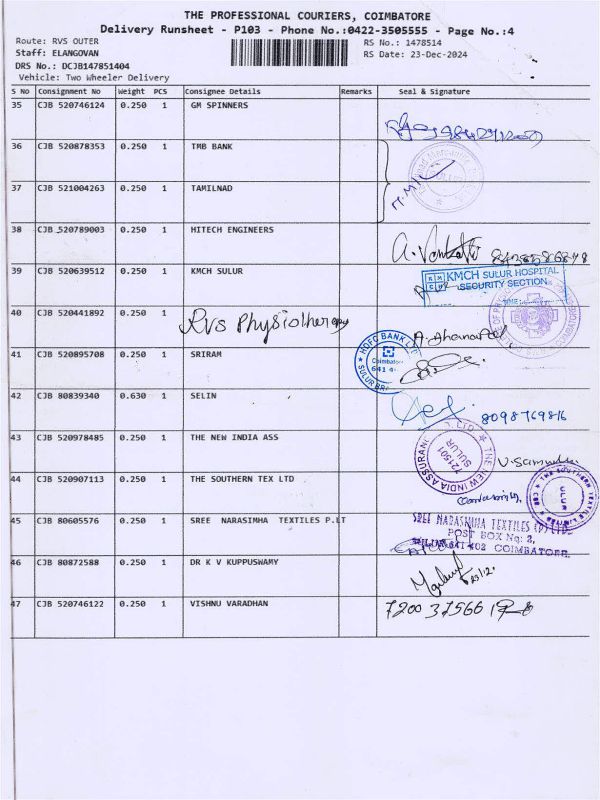 THE PROFESSIONAL COURIERS, COIMBATORE
Delivery Runsheet - P103 - Phone No.:0422-3505555 - Page No.:4
Route: RVS OUTER
RS No.: 1478514
Staff: ELANGOVAN
RS Date: 23-Dec-2024
DRS No.: DCJB147851404
Vehicle: Two Wheeler Delivery
S No Consignment No Weight PCS Consignee Details Remarks Seal & Signature
35 CJB 520746124 0.250 1 GM SPINNERS
36 CJB 520878353 0.250 1 TMB BANK
37 CJB 521004263 0.250 1 TAMILNAD
38 CJB 520789003 0.250 1 HITECH ENGINEERS
39 CJB 520639512 0.250 1 KMCH SULUR
KMCH SULUR HOSPITAL
SECURITY SECTION
40 CJB 520441892 0.250 1 RVS Physiotherapy
HDFC BANK LTD
Coimbatore
41 CJB 520895708 0.250 1 SRIRAM
42 CJB 80839340 0.630 1 SELIN
8098769816
43 CJB 520978485 0.250 1 THE NEW INDIA ASS
THE NEW INDIA ASSURANCE
721501
SULUR
44 CJB 520907113 0.250 1 THE SOUTHERN TEX LTD
45 CJB 80605576 0.250 1 SREE NARASIMHA TEXTILES P.LT
SREE NARASIMHA TEXTILES (P) LTD.
POST BOX No: 2,
COIMBATORE.
46 CJB 80872588 0.250 1 DR K V KUPPUSWAMY
47 CJB 520746122 0.250 1 VISHNU VARADHAN